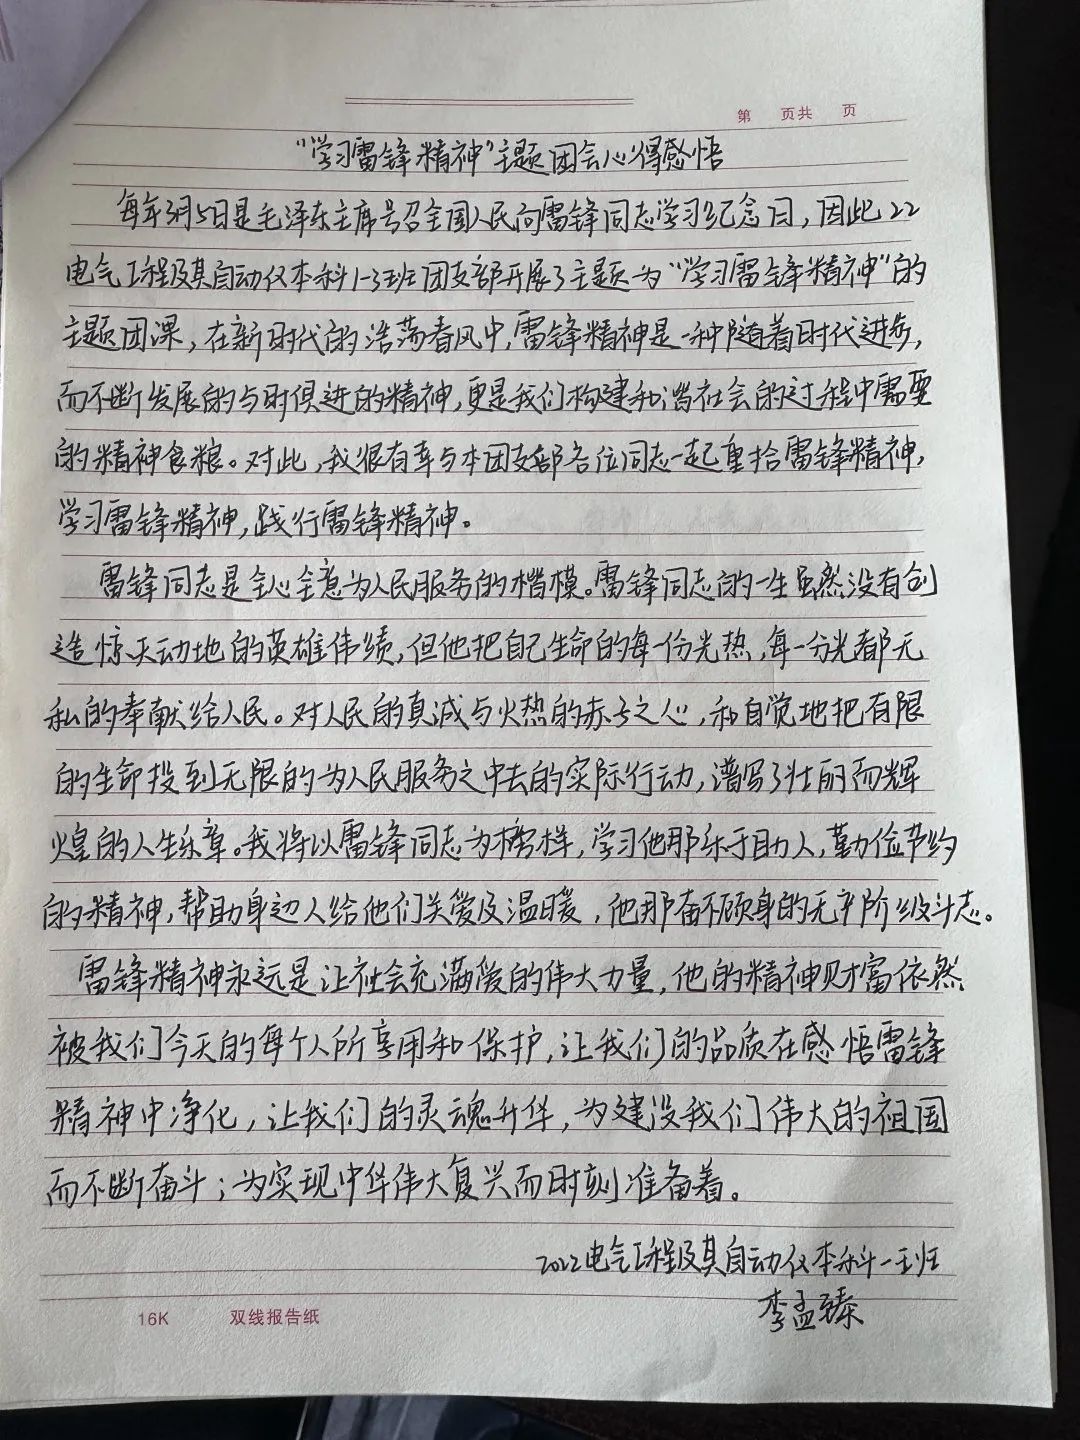 第 页共 页
“学习雷锋精神”主题团会心得感悟
每年3月5日是毛泽东主席号召全国人民向雷锋同志学习纪念日，因此22
电气工程及其自动化本科1-3班团支部开展了主题为“学习雷锋精神”的
主题团课，在新时代的浩荡春风中，雷锋精神是一种随着时代进步，
而不断发展的与时俱进的精神，更是我们构建和谐社会的过程中需要
的精神食粮。对此，我很有幸与本团支部各位同志一起重拾雷锋精神，
学习雷锋精神，践行雷锋精神。
雷锋同志是全心全意为人民服务的楷模。雷锋同志的一生虽然没有创
造惊天动地的英雄伟绩，但他把自己生命的每一份光热，每一分光都无
私的奉献给人民。对人民的真诚与火热的赤子之心，和自觉地把有限
的生命投到无限的为人民服务之中去的实际行动，谱写了壮丽而辉
煌的人生乐章。我将以雷锋同志为榜样，学习他那乐于助人，勤俭节约
的精神，帮助身边人给他们关爱及温暖，他那奋不顾身的无产阶级斗志。
雷锋精神永远是让社会充满爱的伟大力量，他的精神财富依然
被我们今天的每个人所享用和保护，让我们的品质在感悟雷锋
精神中净化，让我们的灵魂升华，为建设我们伟大的祖国
而不断奋斗；为实现中华伟大复兴而时刻准备着。
2022电气工程及其自动化本科一班
李孟臻
16K 双线报告纸